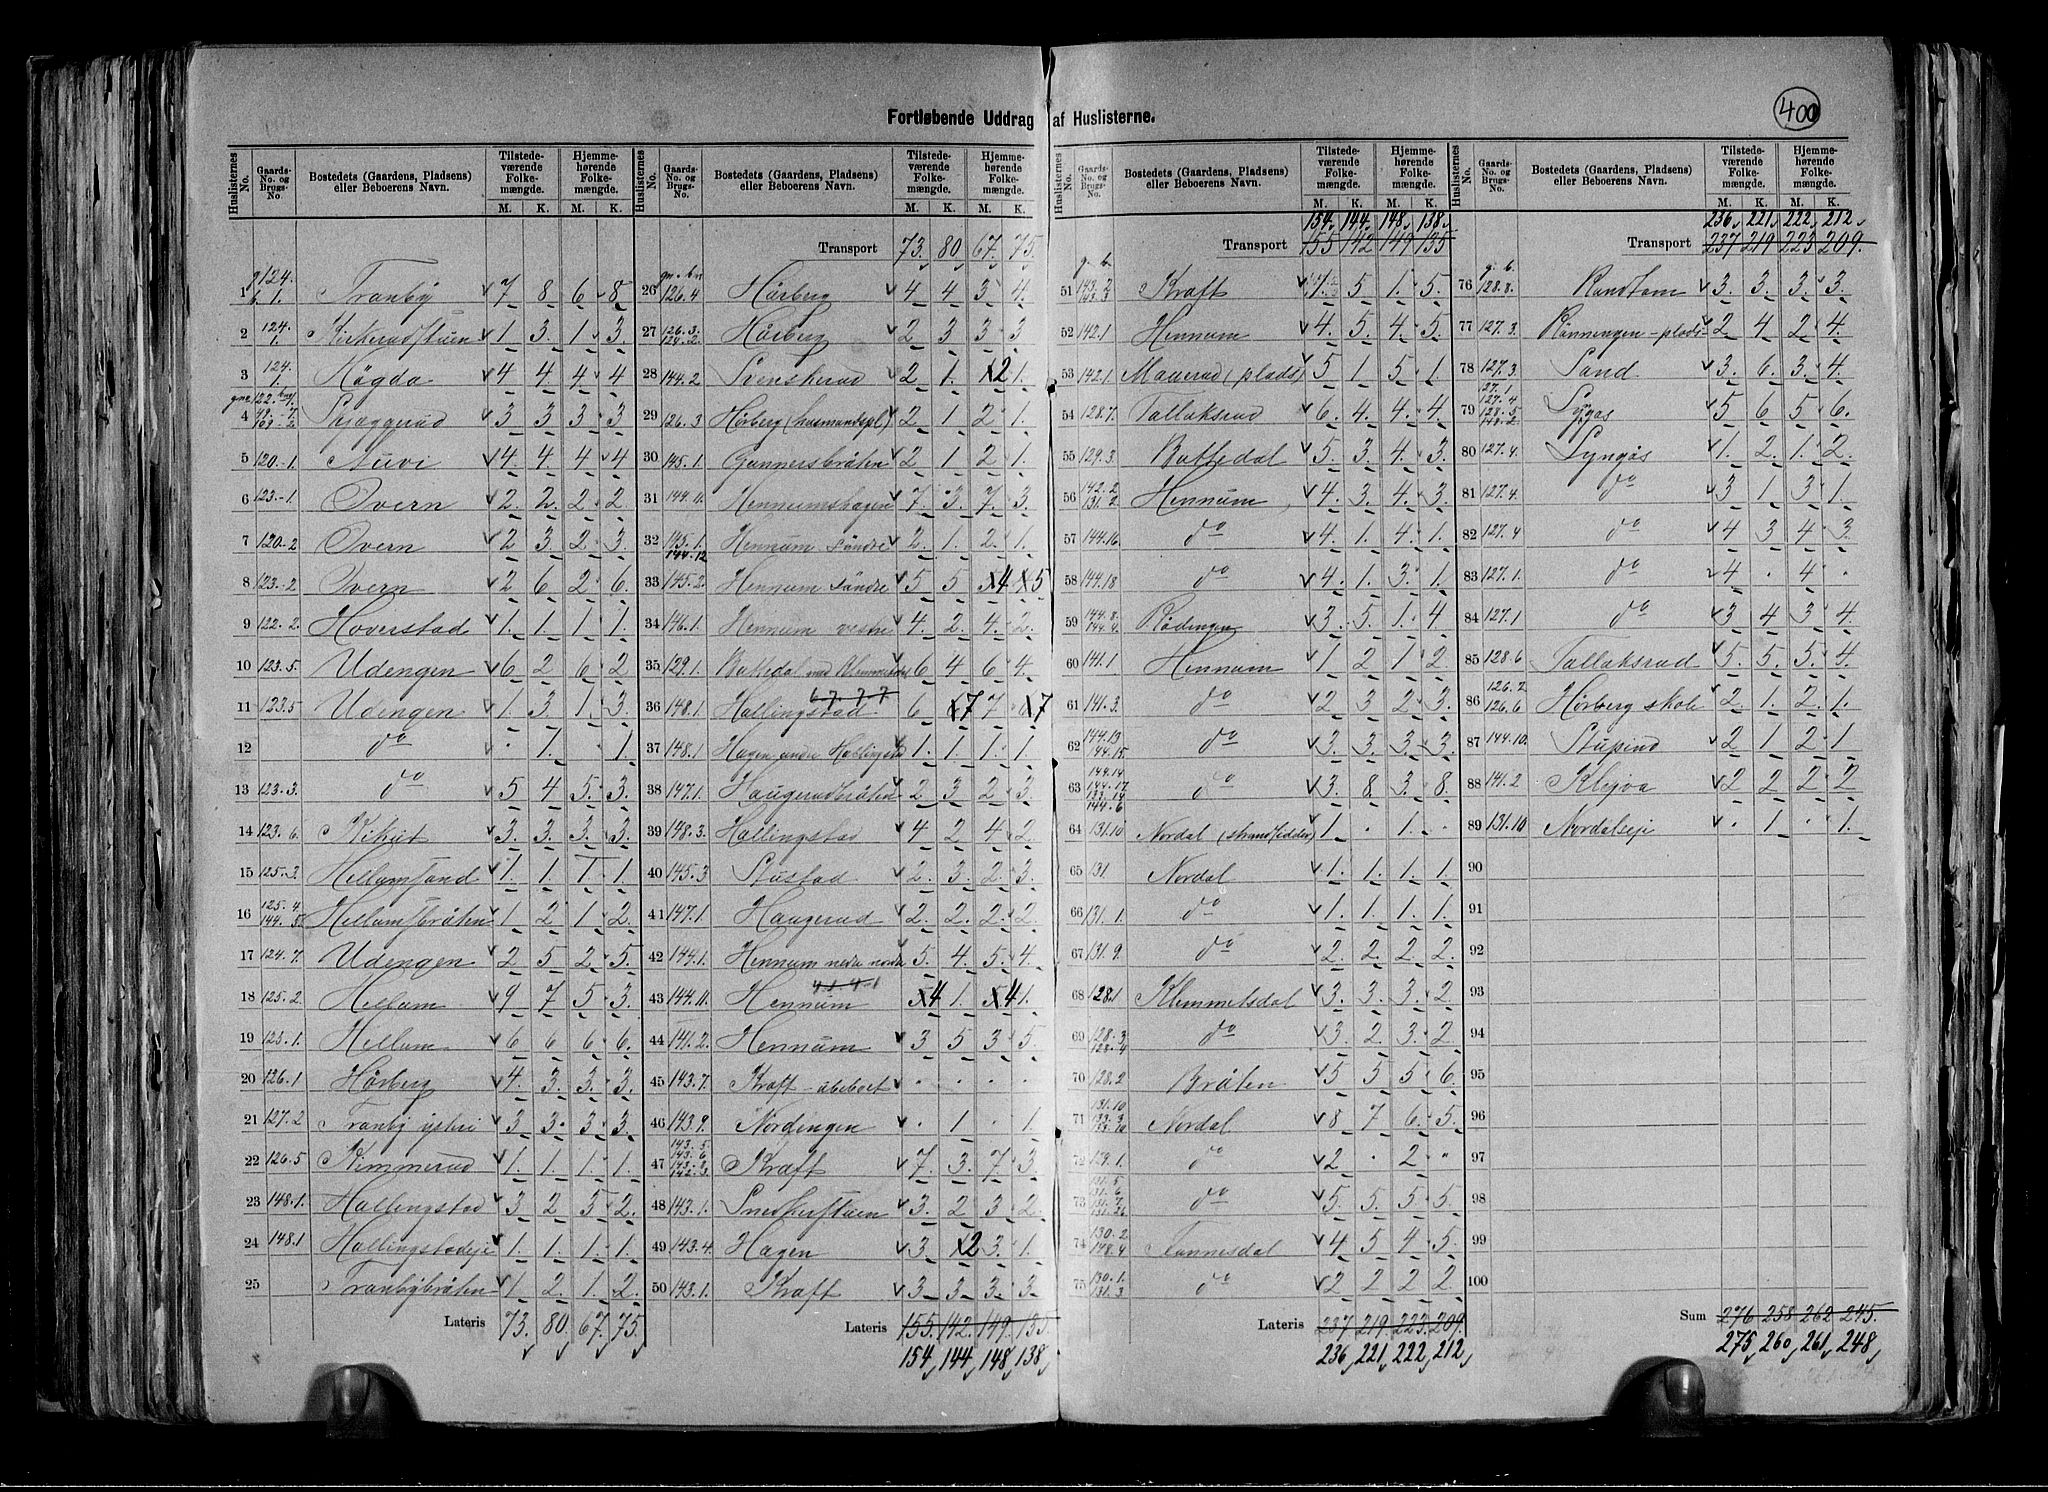 400
Fortløbende Uddrag af Huslisterne.
Huslisternes No. | Gaards-No. og Brugs-No. | Bostedets (Gaardens, Pladsen) eller Beboerens Navn. | Tilstedeværende Folkemængde. M. K. | Hjemmehørende Folkemængde. M. K.
1 124. 6.1. Tranby 7 8 6 8
2 124. 1. Kirkerudstuen 1 3 1 3
3 124. 1. Høgda 4 4 4 4
4 Spjæggerud 3 3 3 3
5 120.-1. Nuvi 4 4 4 4
6 123.-1. Overn 2 2 2 2
7 120.-2 Overn 2 3 2 3
8 123.-2 Overn 2 6 2 6
9 122. 2. Hoverstad 1 1 1 1
10 123.5. Udengen 6 2 6 2
11 123.5 Udengen 1 3 1 3
12 do . 1 . 1
13 123.3. do 5 4 5 3
14 123.6. Kihut 3 3 3 3
15 125.3. Hellumsand 1 1 1 1
16 125.4. 144.5. Hellumsbråten 1 2 1 2
17 124.7. Udengen 2 5 2 5
18 125.2. Hellum 9 7 5 3
19 125.1. Hellum 6 6 6 6
20 126.1 Hörberg 4 3 3 3
21 127.2 Tranby östre 3 3 3 3
22 126.5 Kimmerud 1 1 1 1
23 148.1. Hallingstad 3 2 3 2
24 148.1 Hallingstadeje 1 1 1 1
25 Tranbybråten 1 2 1 2
Lateris 73. 80 67. 75.
Transport 73. 80 67. 75.
26 126.4 Hörberg 4 4 3 4
27 126.3. 124.2. Hörberg 2 3 3 3
28 144.2 Svenskerud 2 1 2 1
29 126.3 Hörberg (husmandspl) 2 1 2 1
30 145.1. Gunnersbråten 2 1 2 1
31 144.11. Hennumshagen 7 3 7 3
32 145.1. 144.12 Hennum söndre 2 1 2 1
33 145.2. Hennum söndre 5 5 4 5
34 146.1. Hennum vestre 4 2 4 2
35 129.1. Battedal med Klemmetsdal 6 4 6 4
36 148.1. Hallingstad 6 7 7 7
37 148.1 Hagen under Hallingstad 1 1 1 1
38 147.1. Haugerudbråten 2 3 2 3
39 148.3. Hallingstad 4 2 4 2
40 145.3 Stustad 2 3 2 3
41 147.1. Haugerud 2 2 2 2
42 144.1. Hennum nedre nordre 5 4 5 4
43 144.11. Hennum 4 1 4 1
44 141.2. Hennum 3 5 3 5
45 143.7. Kraft - ubeboet . . . .
46 143.9. Nordengen . 1 . 1
47 143.5 143.6 143.2 142.3 Kraft 7 3 7 3
48 143.1. Snedkerstuen 3 2 3 2
49 143.4. Hagen 3 2 3 1
50 143.1. Kraft 3 3 3 3
Lateris 155. 142. 149. 135.
154, 144, 148, 138,
154, 144, 148, 138,
Transport 155 142 149 135
51 143.2 Kraft 1 5 1 5
52 142.1 Hennum 4 5 4 5
53 142.1 Maaerud (plads) 5 1 5 1
54 128.7. Tallaksrud 6 4 4 4
55 129.3. Battedal 5 3 4 3
56 142.2 131.2 Hennum 4 3 4 3
57 144.16 do 4 1 4 1
58 144.18 do 4 1 3 1
59 144.8. 144.4. Rödengen 3 5 1 4
60 141.1 Hennum 1 2 1 2
61 141.3. do 2 3 2 3
62 144.13 144.15. do 3 3 3 3
63 149.14 144.17 133.14 144.6 do 3 8 3 8
64 131.10 Nordal (strandsidder) 1 . 1 .
65 131. Nordal 1 1 1 1
66 131.1. do 1 1 1 1
67 131.9. do 2 2 2 2
68 128.1 Klemmetsdal 3 3 3 2
69 128.3 128.4 do 3 2 3 2
70 128.2 Bråten 5 5 5 6
71 131.10 133.3 133.10 Nordal 8 7 6 5
72 139.1. do 2 . 2 "
73 131.5 131.6 131.7 do 5 5 5 5
74 130.2 148.4 Tannesdal 4 5 4 5
75 130.1. 131.3 do 2 2 2 2
Lateris 237 219. 223. 209.
236, 221, 222, 212,
236, 221, 222, 212,
Transport 237 219 223 209.
76 128.8. 3 3 3 3
77 127.3. Rönningen - plads 2 4 2 4
78 127.3. Sand 3 6 3 4
79 127.1 127.4 128.5 Lyngås 5 6 5 6
80 127.4. Lyngås 1 2 1 2
81 127.4. do 3 1 3 1
82 127.4 do 4 3 4 3
83 127.1. do 4 . 4 .
84 127.1 do 3 4 3 4
85 128.6 Tallaksrud 5 5 5 4
86 126.2 126.6 Hörberg skole 2 1 2 1
87 144.10. Stupind 2 1 2 1
88 141.2 Klejva 2 2 2 2
89 131.10 Nordalseje . 1 . 1
90
91
92
93
94
95
96
97
98
99
100
Sum 276 258 262 245.
275, 260, 261, 248,